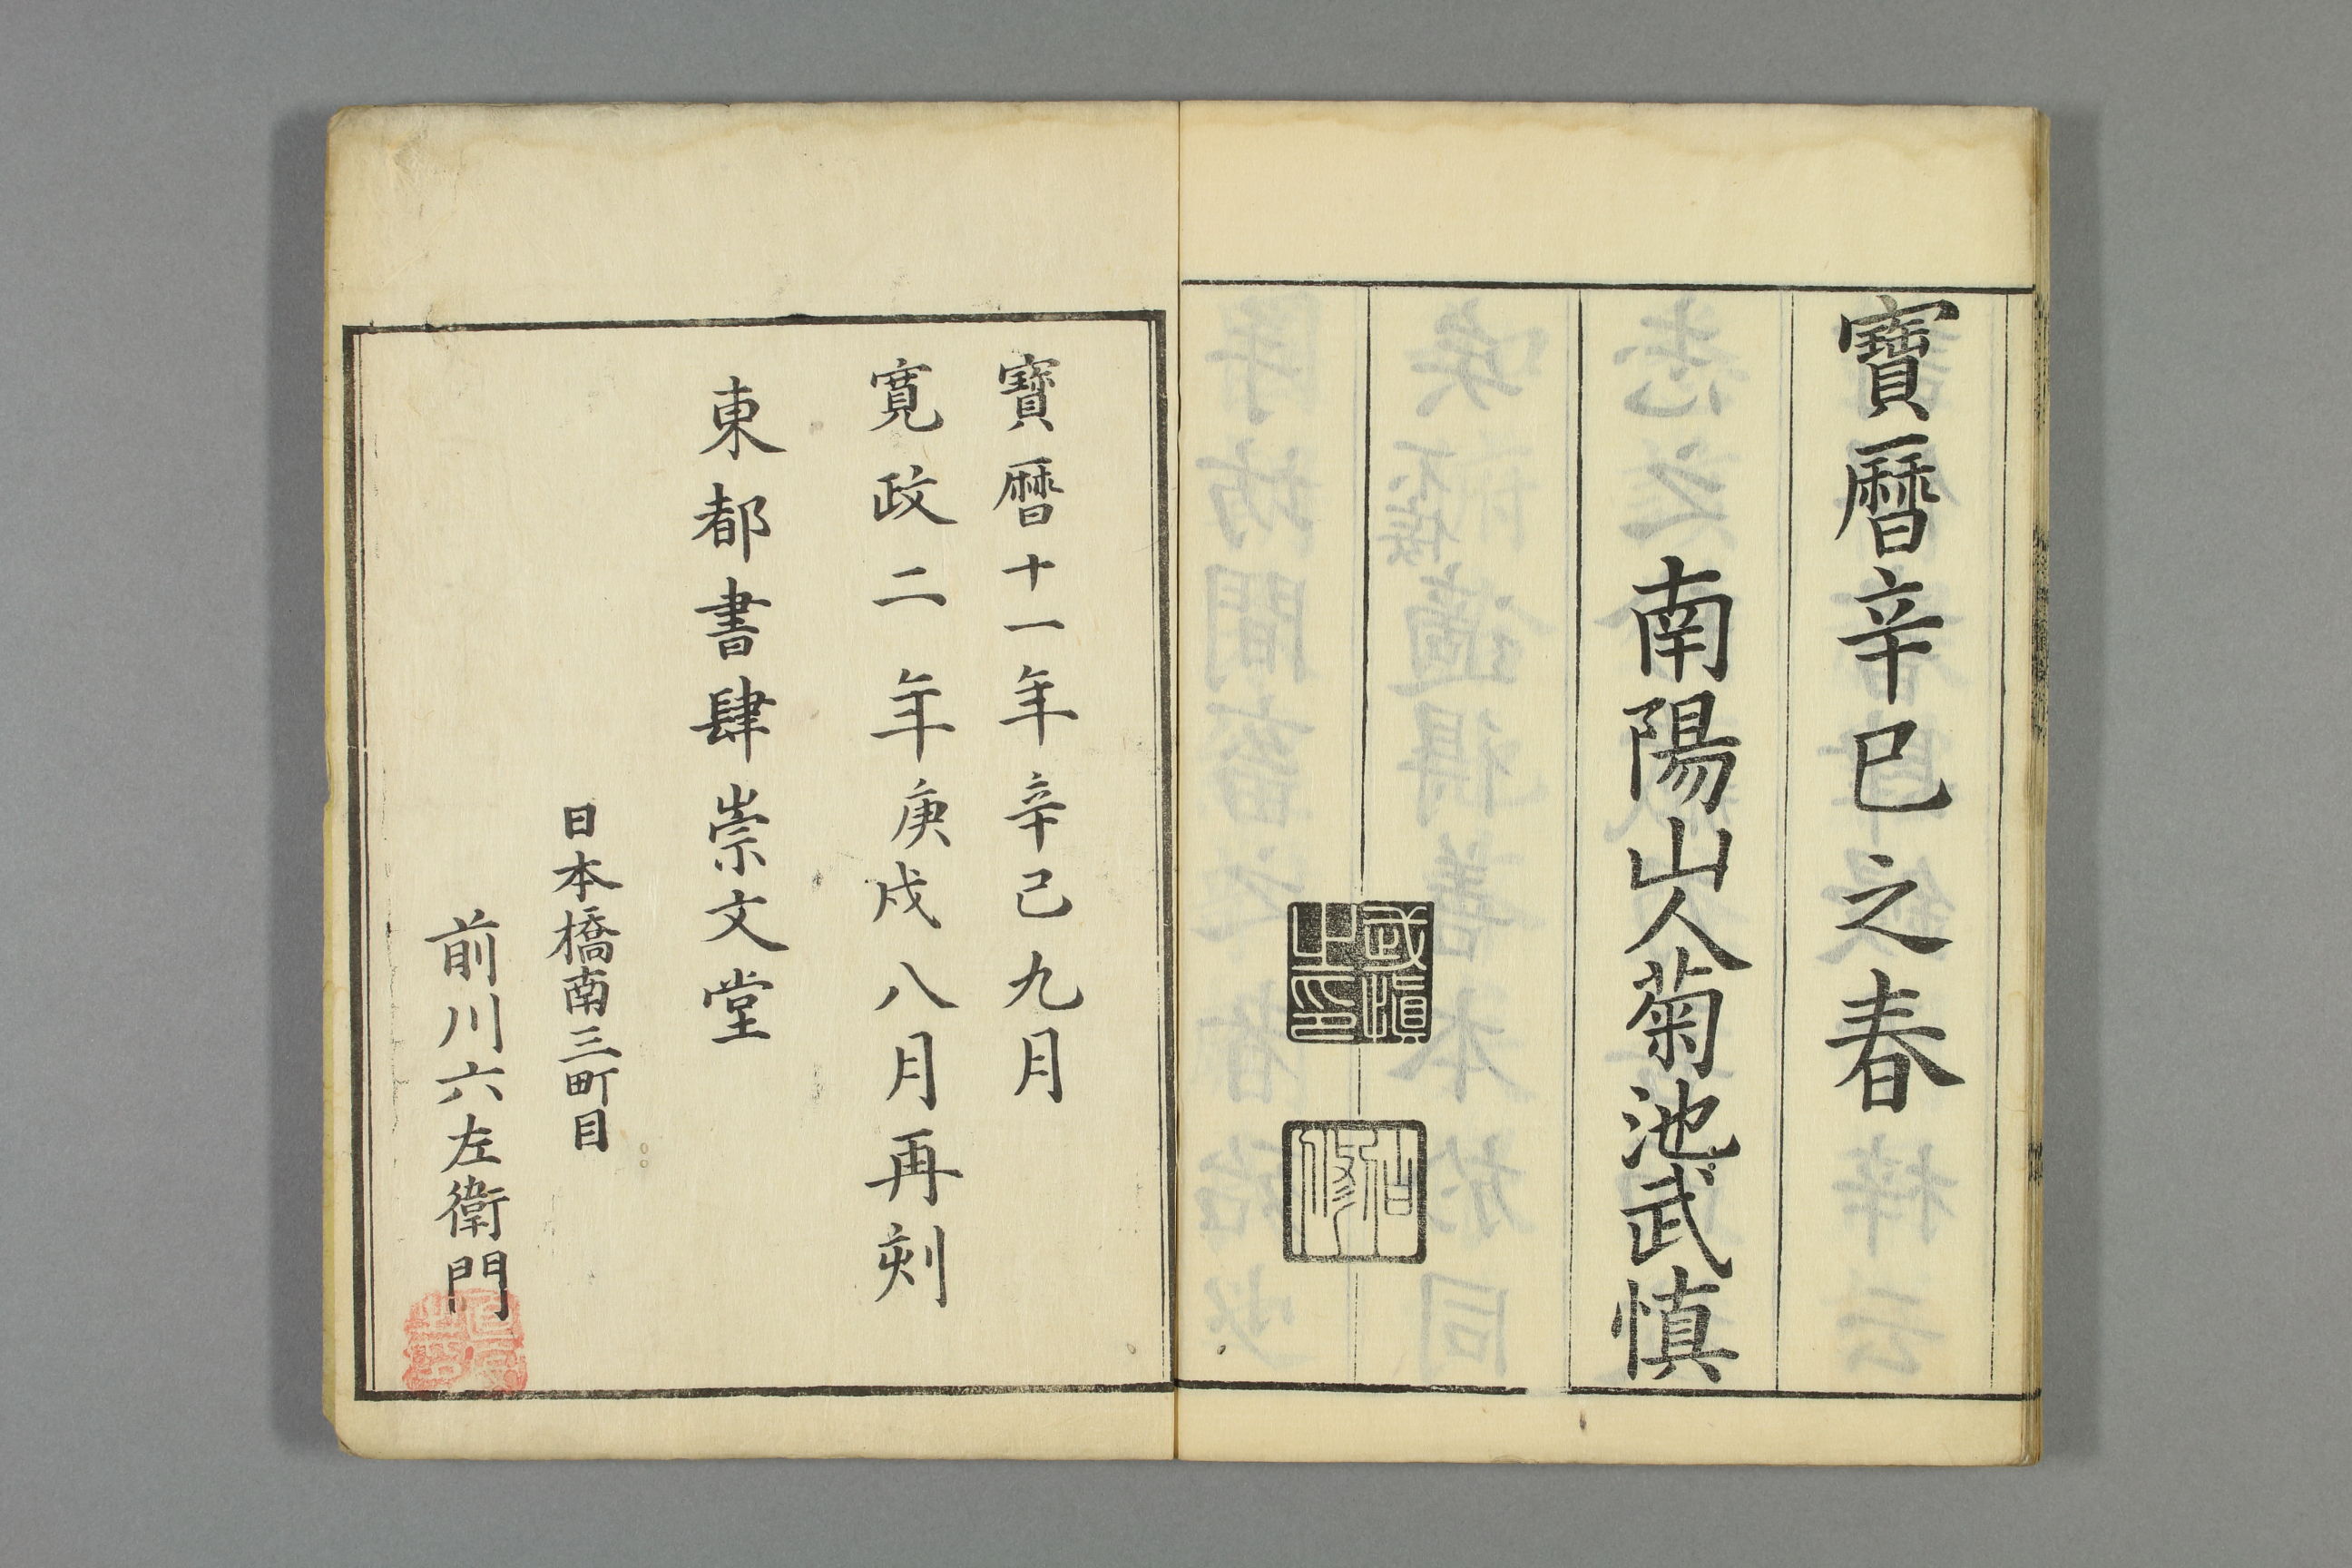 寶曆辛巳之春
南陽山人菊池武慎
武慎
之印
伯修
寶曆十一年辛巳九月
寬政二年庚戌八月再刻
東都書肆崇文堂
日本橋南三町目
前川六左衛門